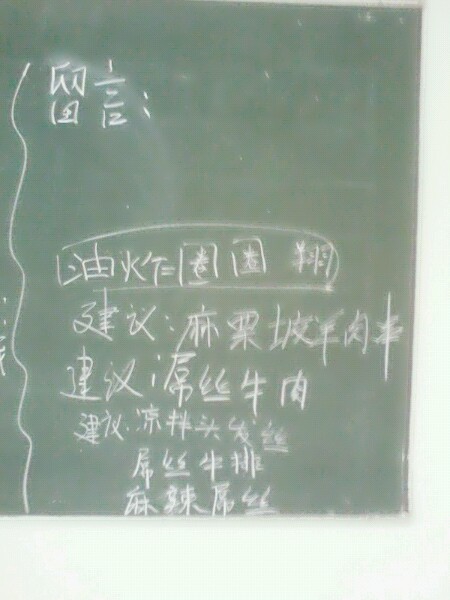 留言:
油炸圈圈翔
建议:麻栗坡羊肉串
建议:屌丝牛肉
建议:凉拌头发丝
屌丝牛排
麻辣屌丝